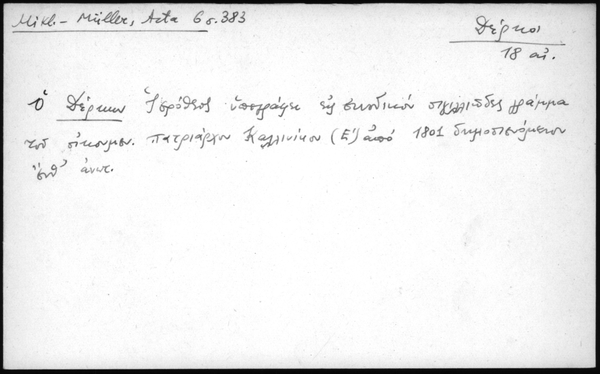 Mikl.-Müller, Acta 6 σ.383
Δέρκοι
18 αἰ.
ὁ Δέρκων Ἱερόθεος ὑπογράφει εἰς συνοδικόν σιγιλλιῶδες γράμμα
τοῦ οἰκουμεν. πατριάρχου Καλλινίκου (Ε') ἀπό 1801 δημοσιευόμενον
ἔνθ' ἀνωτ.